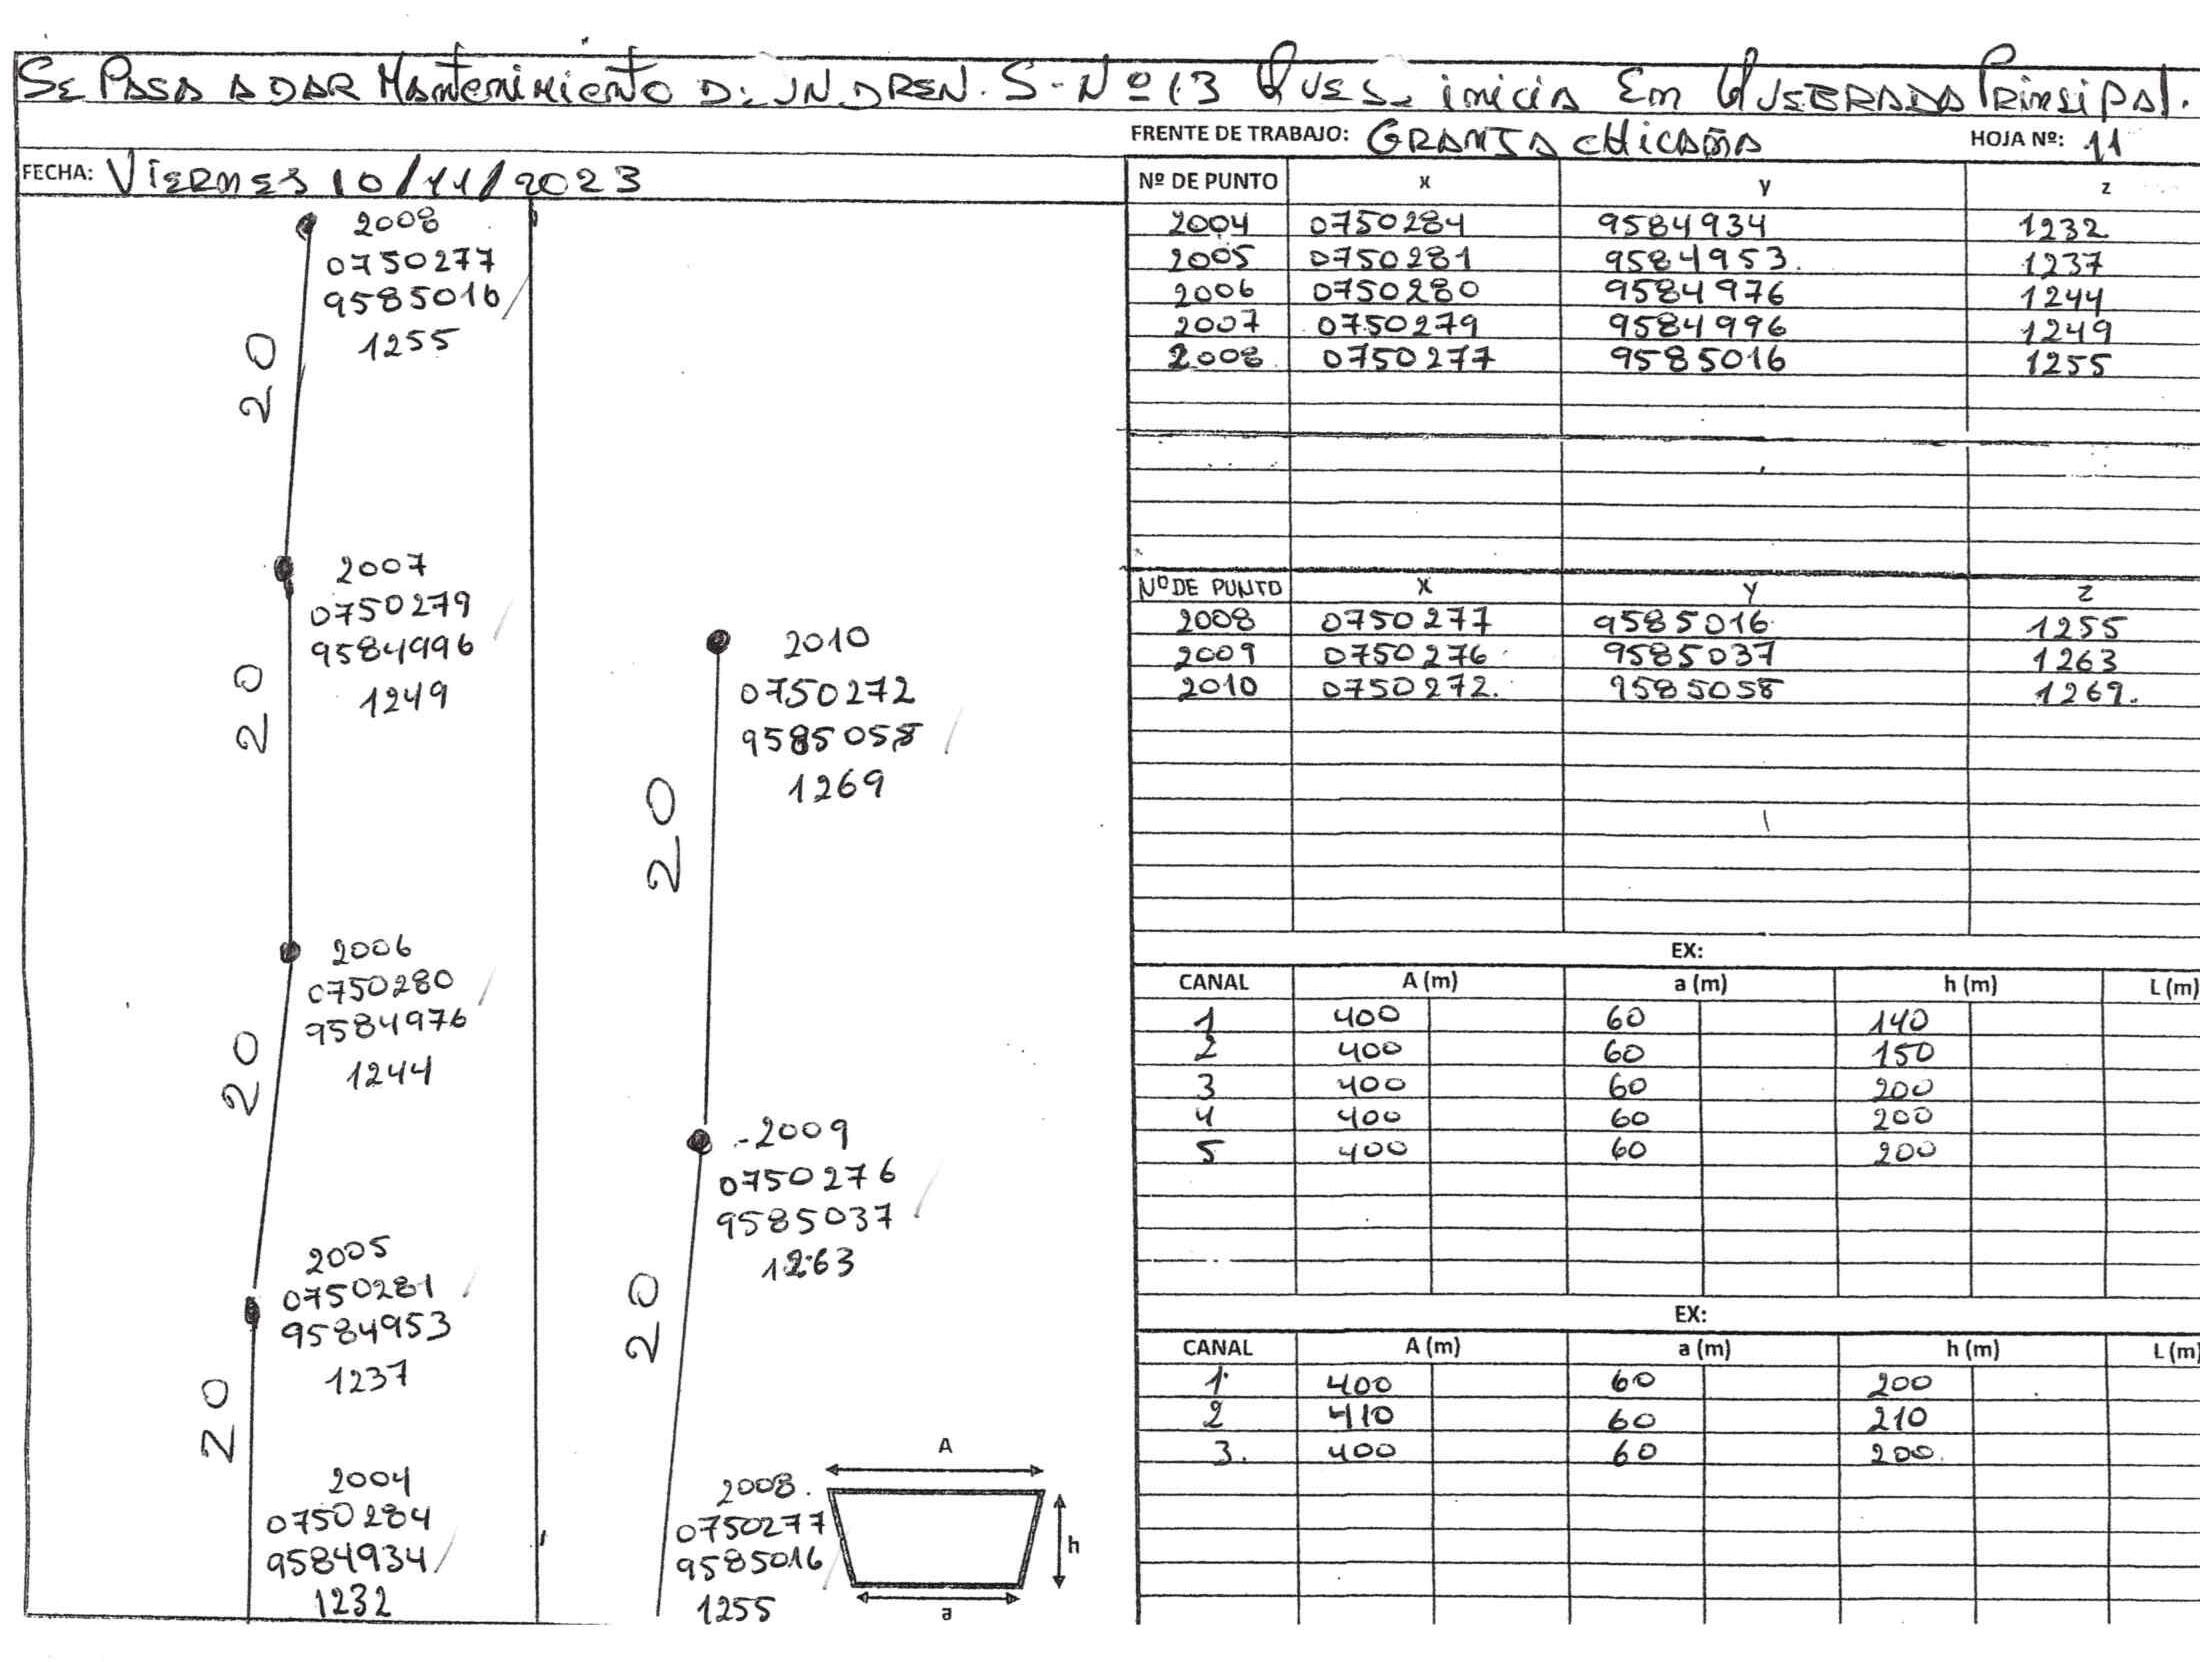 SE PASA A DAR Mantenimiento De UN DREN. S-Nº 13 QUE Se inicia Em QUEBRADA PRinsipal.
FRENTE DE TRABAJO: GRANJA CHICAÑA HOJA Nº: 11
FECHA: VIERNES 10/11/2023
2008
0750277
9585016
1255
20
2007
0750279
9584996
1249
20
2006
0750280
9584976
1244
20
2005
0750281
9584953
1237
20
2004
0750284
9584934
1232
2010
0750272
9585058
1269
20
2009
0750276
9585037
1263
20
2008.
0750277
9585016
1255
A
h
a
Nº DE PUNTO x y z
2004 0750284 9584934 1232
2005 0750281 9584953. 1237
2006 0750280 9584976 1244
2007 0750279 9584996 1249
2008 0750277 9585016 1255
Nº DE PUNTO X Y Z
2008 0750277 9585016 1255
2009 0750276 9585037 1263
2010 0750272. 9585058 1269.
EX:
CANAL A (m) a (m) h (m) L (m)
1 400 60 140
2 400 60 150
3 400 60 200
4 400 60 200
5 400 60 200
EX:
CANAL A (m) a (m) h (m) L (m)
1 400 60 200
2 410 60 210
3. 400 60 200